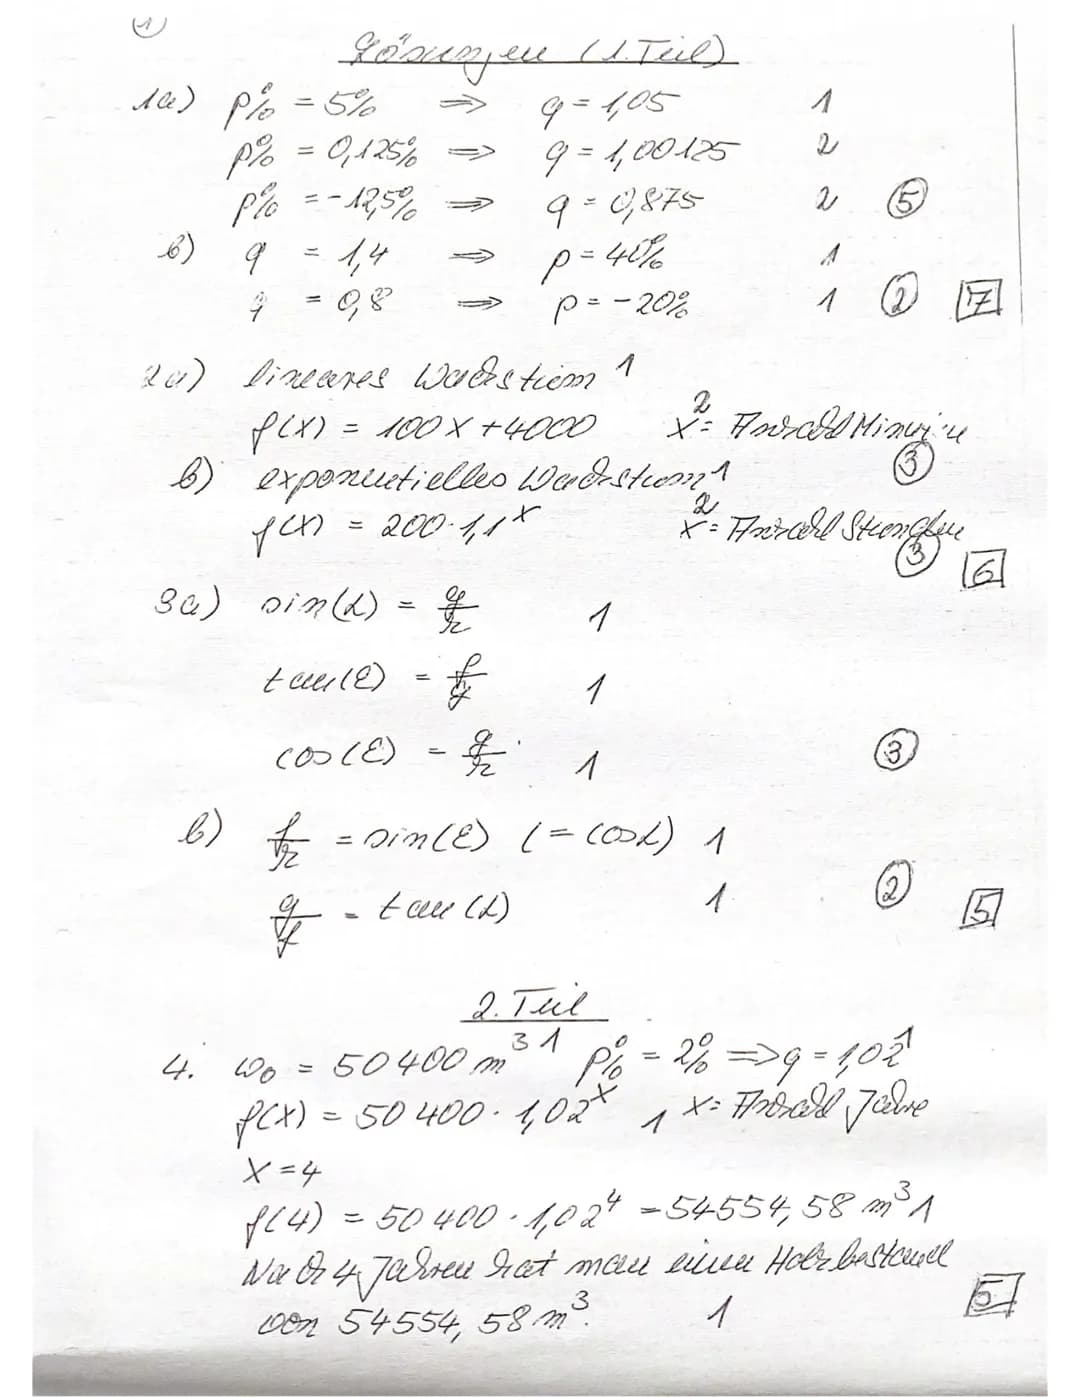 1
Lösungen (1. Teil)
1a) p% = 5% ⇒ q = 1,05 1
p% = 0,125% ⇒ q = 1,00125 2
p% = -12,5% ⇒ q = 0,875 2 5
b) q = 1,4 ⇒ p = 40% 1
q = 0,8 ⇒ p = -20% 1 2 7
2a) lineares Wachstum 1
f(x) = 100x + 4000 2 x = Anzahl Minute
3
b) exponentielles Wachstum 1
f(x) = 200·1,1^x 2 x = Anzahl Stunden
3 6
3a) sin(α) = g/r 1
tan(ε) = f/g 1
cos(ε) = g/r 1 3
b) f/r = sin(ε) (= cos α) 1
g/f = tan(α) 1 2 5
2. Teil
4. w₀ = 50 400 m³ 1 p% = 2% ⇒ q = 1,02 1
f(x) = 50 400 · 1,02^x 1 x = Anzahl Jahre
x = 4
f(4) = 50 400 · 1,02⁴ = 54554,58 m³ 1
Nach 4 Jahren hat man einen Holzbestand
von 54554,58 m³. 1 5